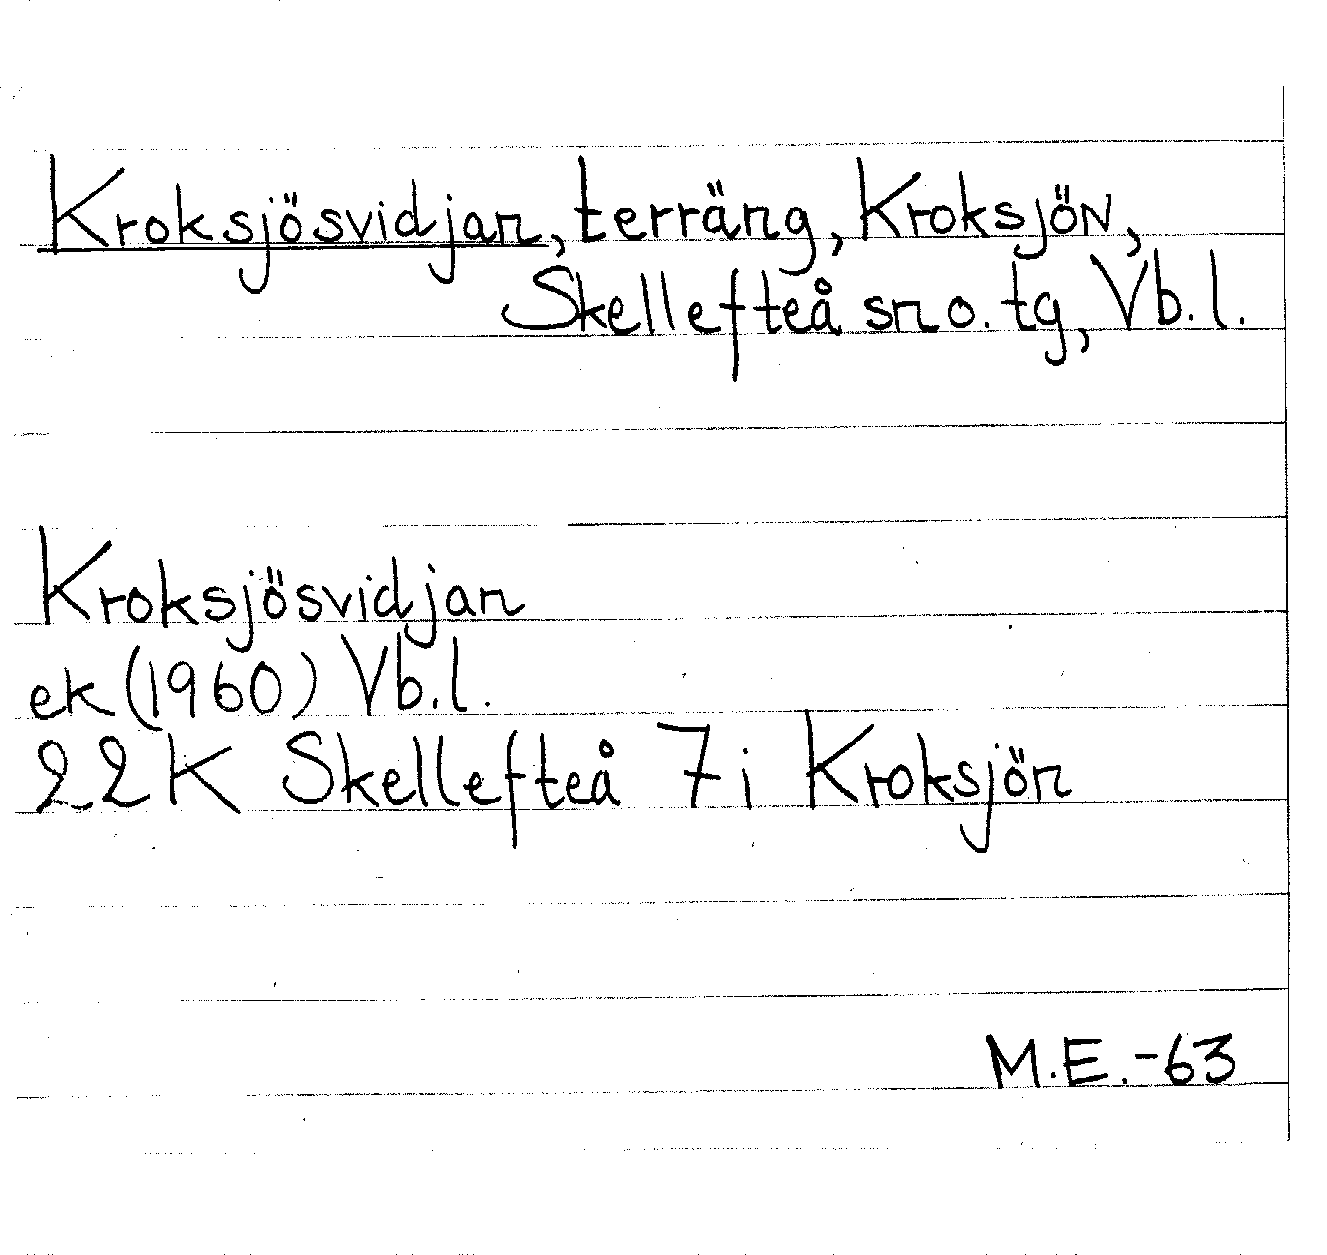 Kroksjösvidjan, terräng, Kroksjön,
Skellefteå sn o. tg, Vb. l.
Kroksjösvidjan
ek (1960) Vb. l.
22K Skellefteå 7i Kroksjön
M.E.-63